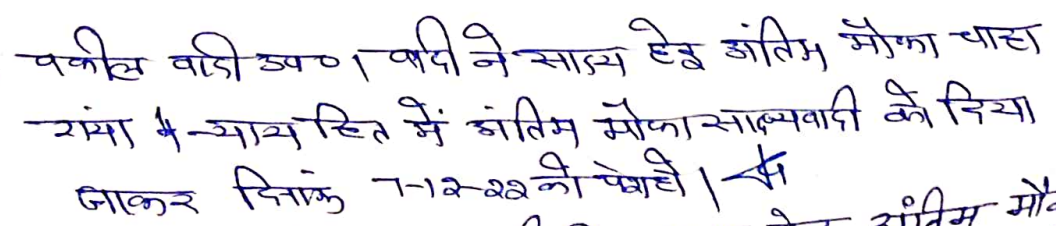 वकील वादी उप०। वादी ने साक्ष्य हेतु अंतिम मौका चाहा
गया। न्याय हित में अंतिम मौका साक्ष्यवादी को दिया
जाकर दिनांक 7-12-22 को पेश हो।
अंतिम मौ